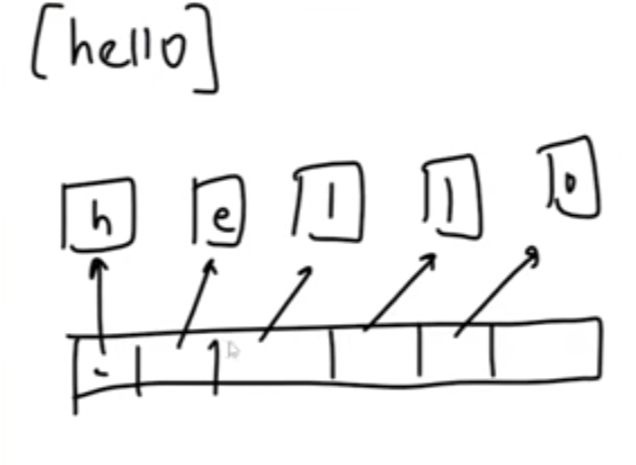 [hello]
h e l l o